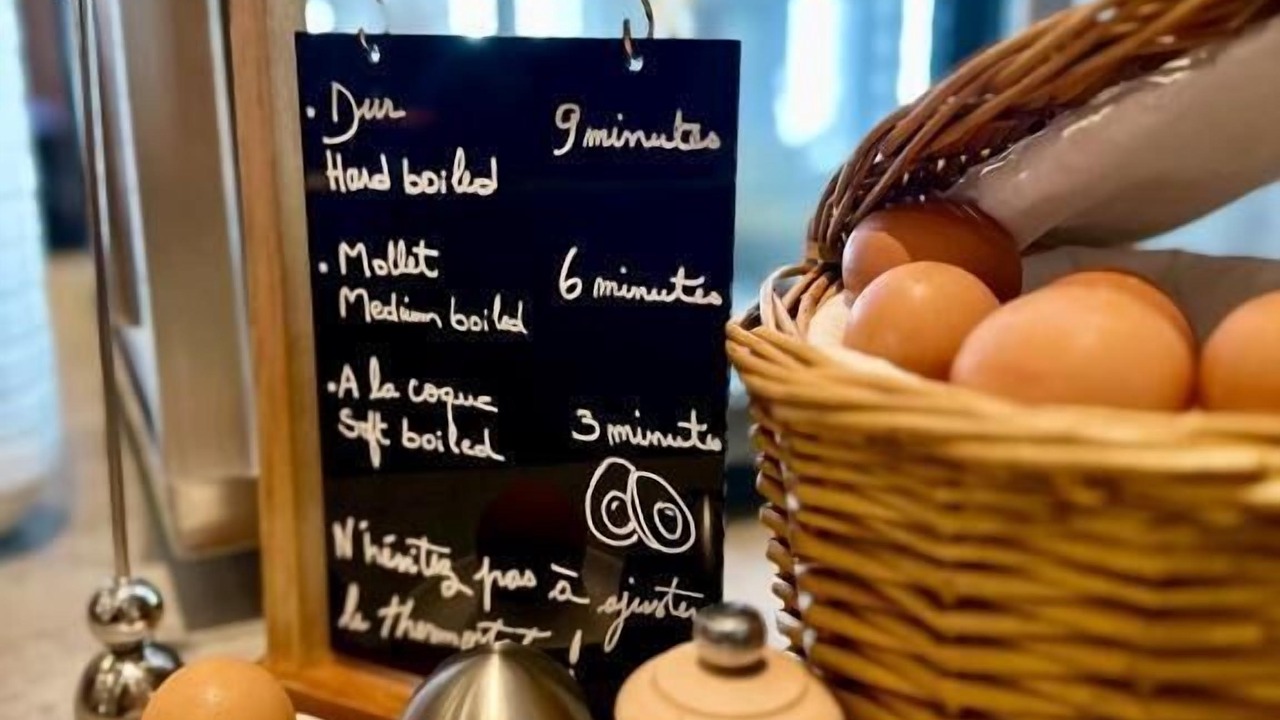 · Dur 9 minutes
Hard boiled
· Mollet 6 minutes
Medium boiled
· A la coque
Soft boiled 3 minutes
N'hésitez pas à ajuster
le !